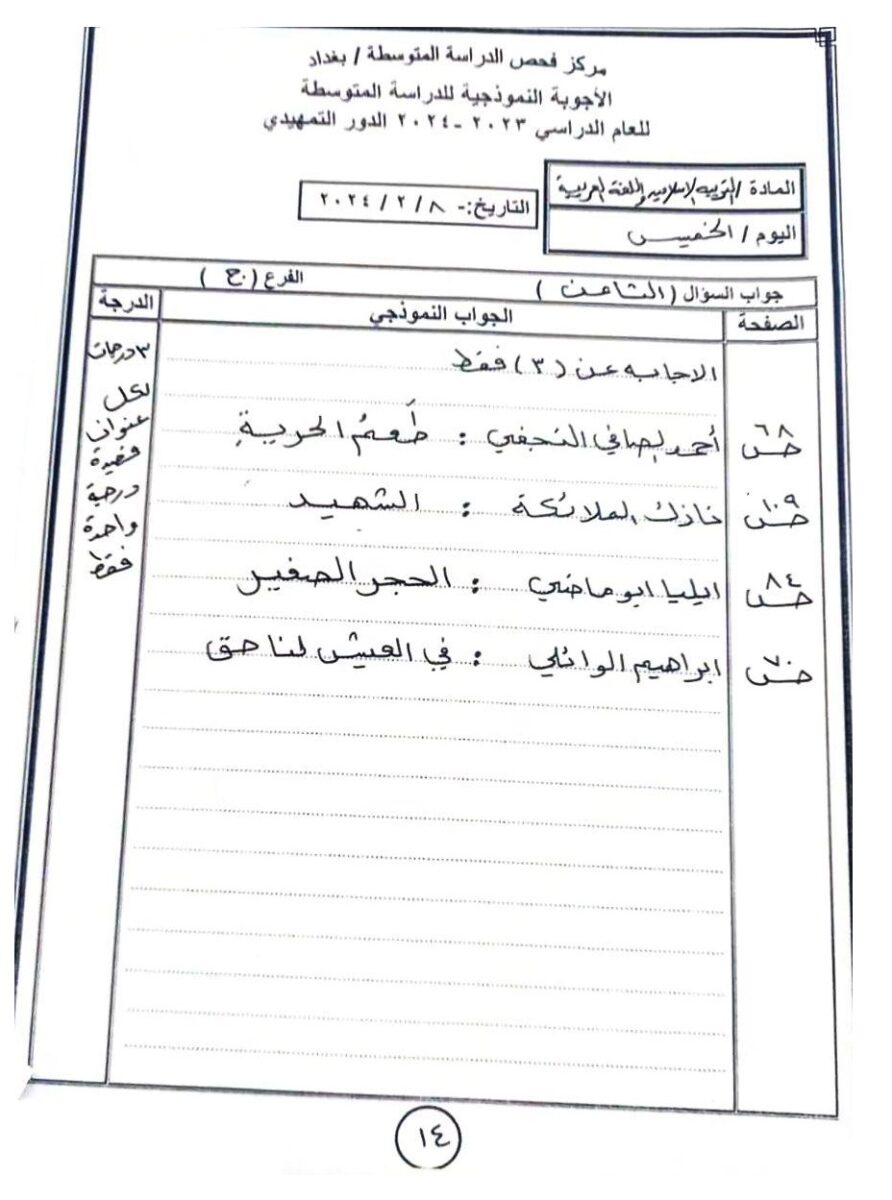 مركز فحص الدراسة المتوسطة / بغداد
الأجوبة النموذجية للدراسة المتوسطة
للعام الدراسي ٢٠٢٣ -٢٠٢٤ الدور التمهيدي
المادة / التربية الاسلامية واللغة العربية
اليوم / الخميس
التاريخ:- ٨ / ٢ / ٢٠٢٤
جواب السؤال ( الثامن ) الفرع ( ج )
الصفحة الجواب النموذجي الدرجة
الاجابه عن (٣) فقط
ص٦٨ أحمد الصافي النجفي : طَعمُ الحرية
ص١٠٩ نازك الملائكة : الشهيد
ص٨٤ ايليا ابو ماضي : الحجر الصغير
ص٧٠ ابراهيم الوائلي : في العيش لنا حق
٣ درجات
لكل
عنوان
قصيدة
درجة
واحدة
فقط
١٤